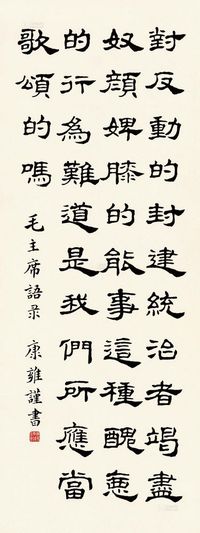 對反動的封建統治者竭盡
奴顏婢膝的能事這種醜惡
的行為難道是我們所應當
歌頌的嗎
毛主席語录 康雍謹書